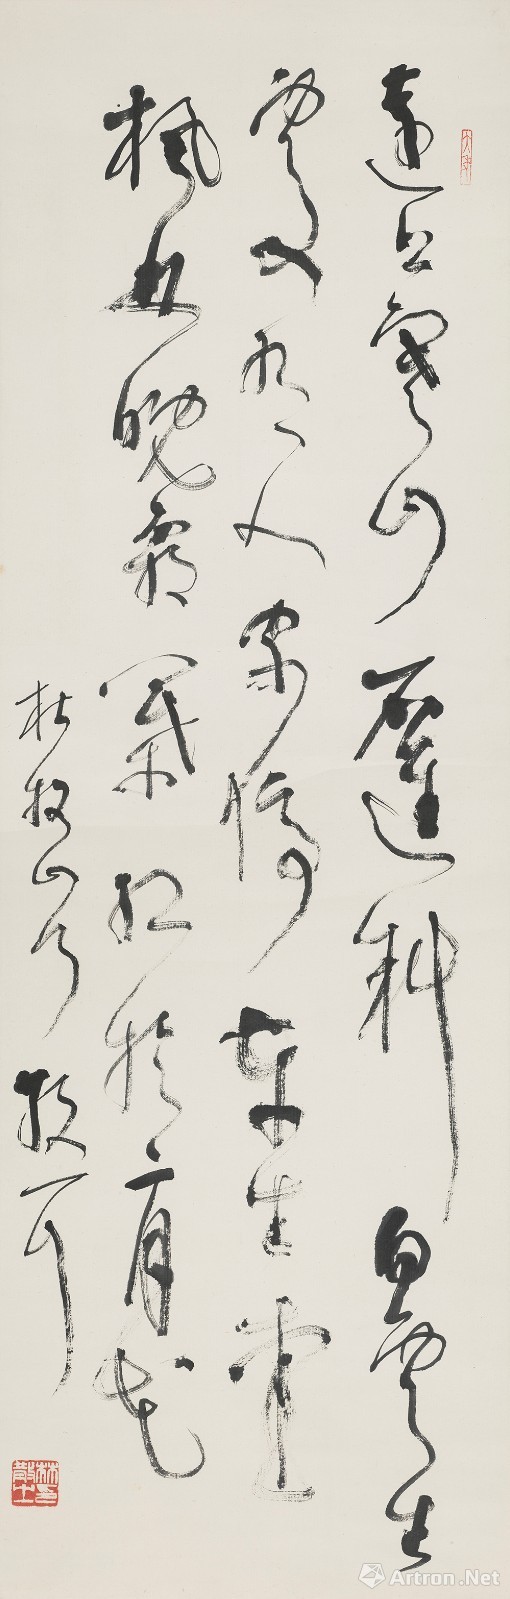 遠上寒山石逕斜白雲生
處有人家停車坐愛
楓林晚霜葉紅於二月花
杜牧山行 散耳
林印散之
Artron.Net